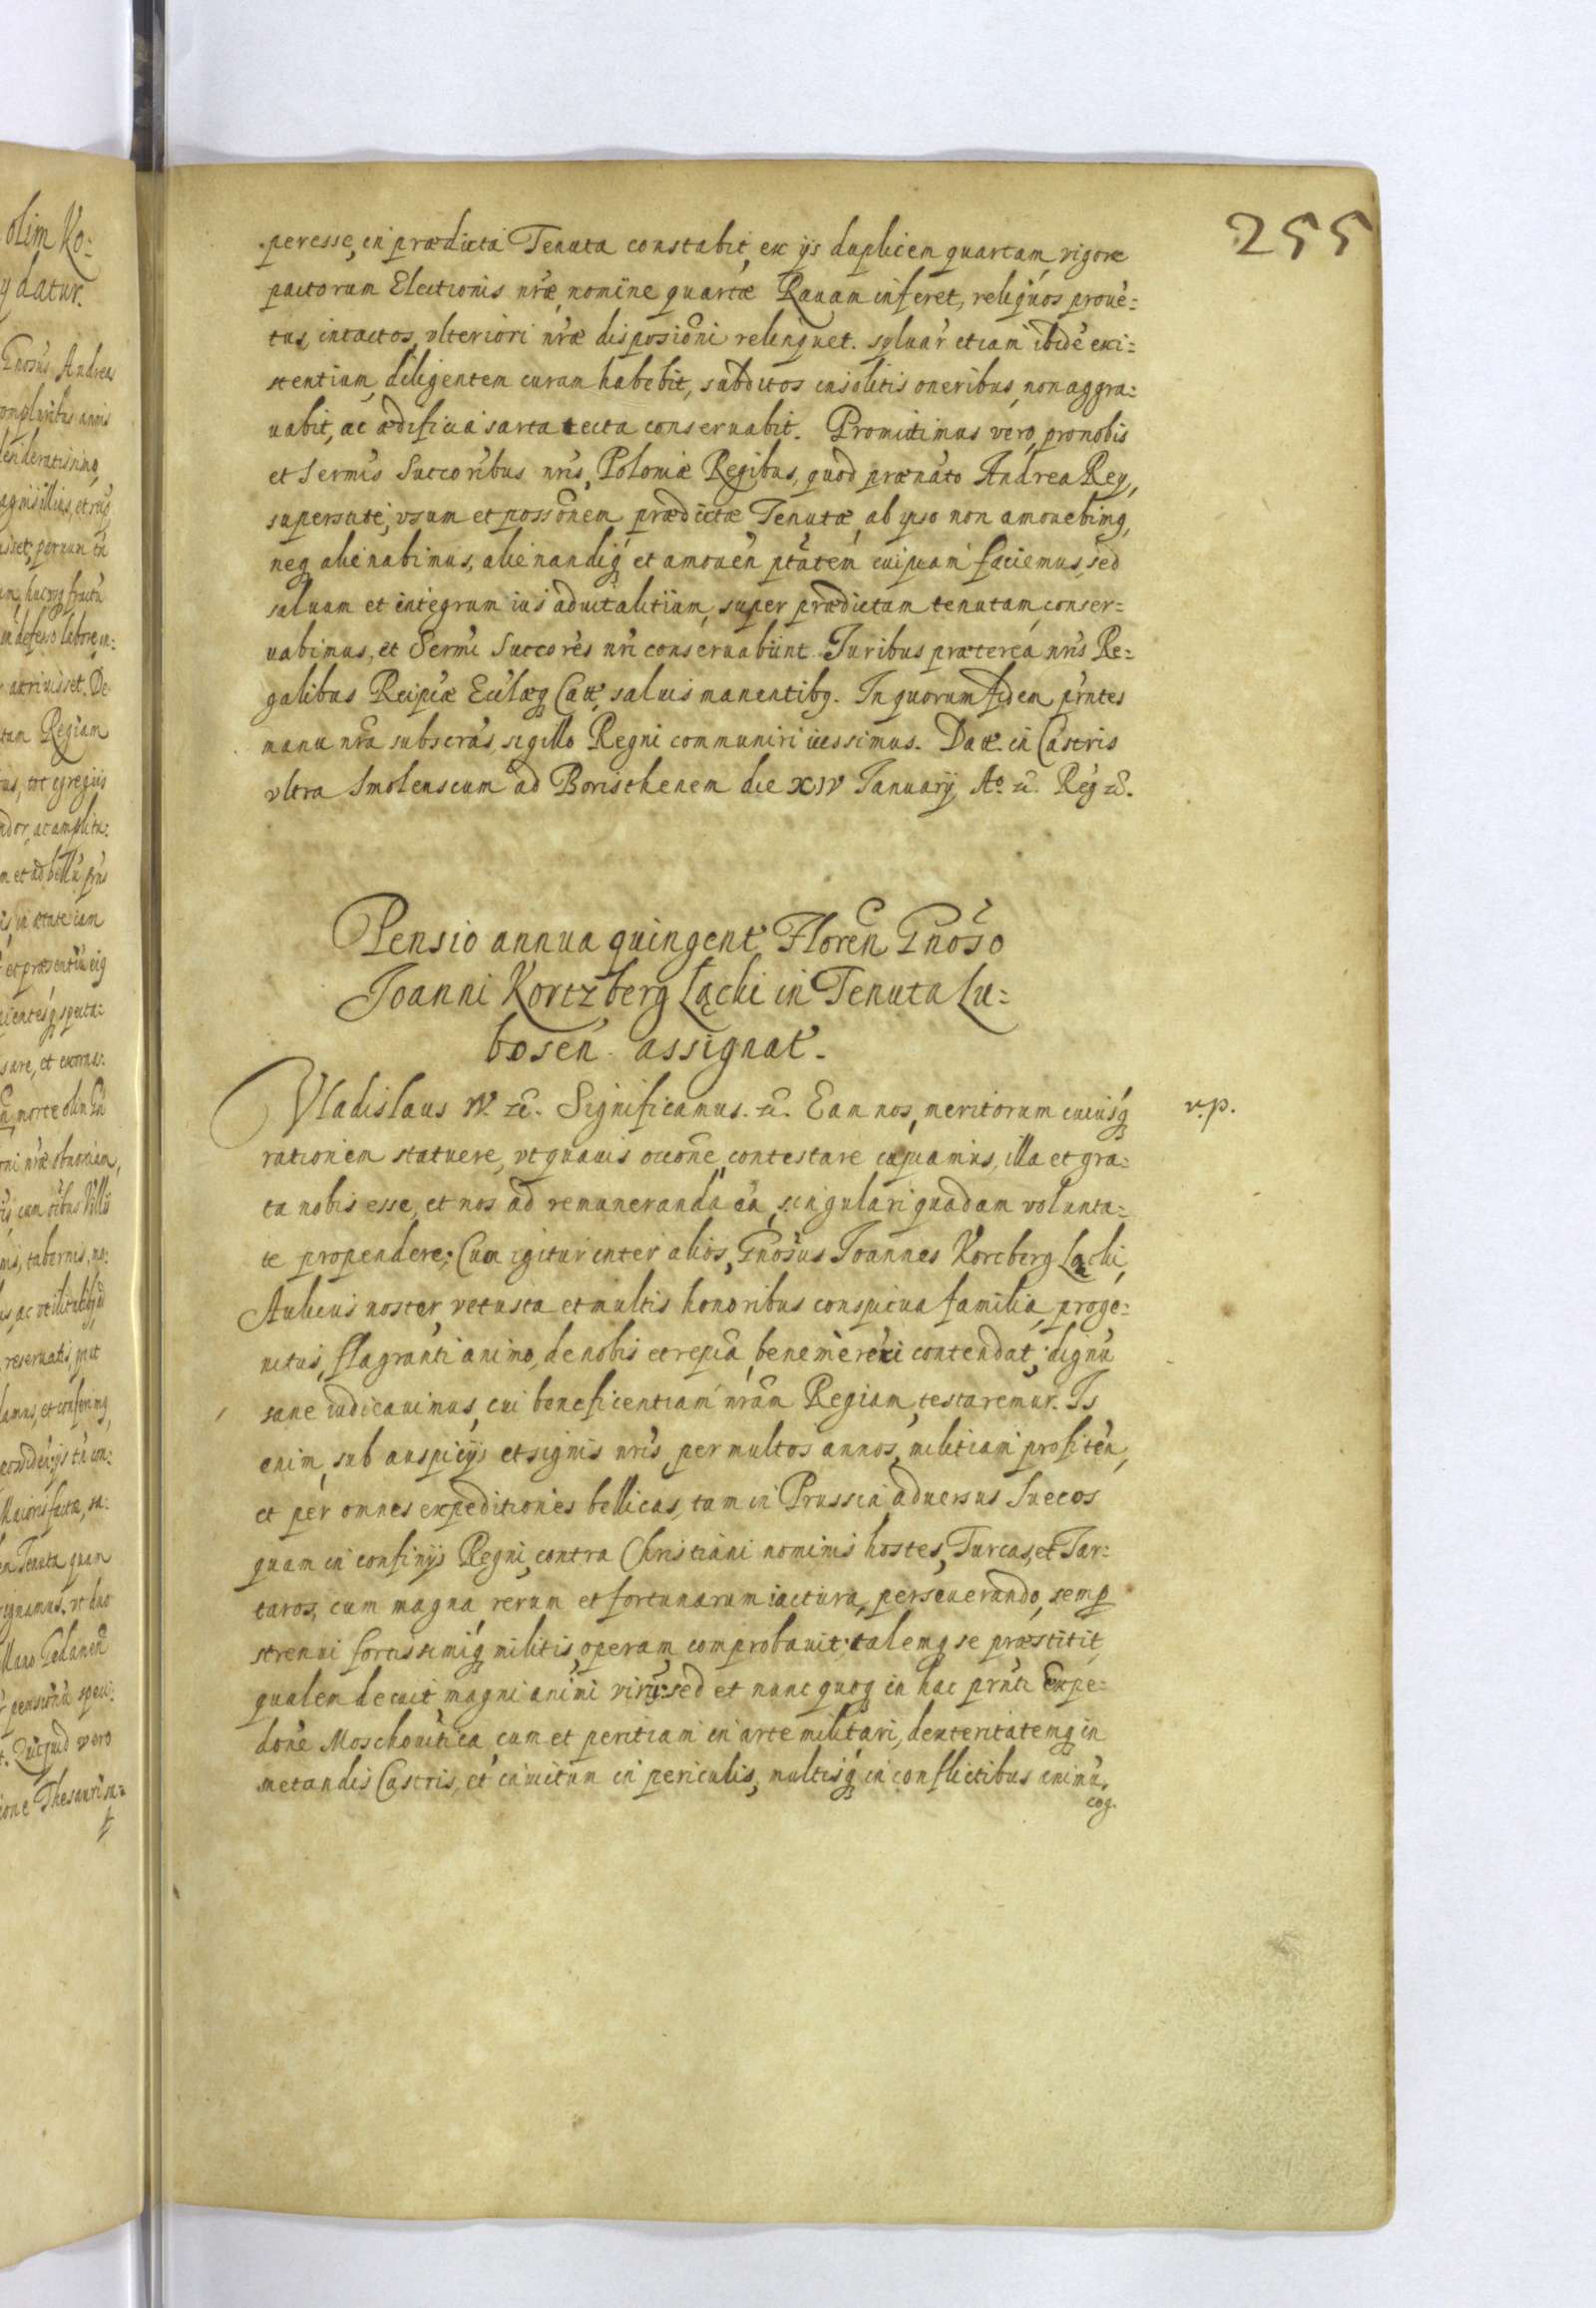 255
peresse, in prædicta Tenuta constabit, ex ijs duplicem quartam, rigore
pactorum Electionis nræ, nomine quartæ Rauam inferet, reliquos proue=
tus, intactos, vlteriori nræ disposioni relinquet. syluar etiam ibidẽ exi=
stentium, diligentem curam habebit, subditos insolitis oneribus, non aggra=
uabit, ac ædificia sarta tecta conseruabit. Promittimus vero, pro nobis
et Sermis Succoribus nris, Poloniæ Regibus, quod prænato Andrea Rey,
superstite, vsum et possonem prædictæ Tenutæ, ab ipso non amouebimq,
neq alienabimus, alienandiq et amouen ptatem cuipiam faciemus, sed
saluum et integrum ius aduitalitium, super prædictam tenutam, conser=
uabimus, et Sermi Succores nri conseruabunt. Juribus præterea nris Re=
galibus Reipcæ Ecclæq Catt, saluis manentibq. In quorum fidem prntes
manu nra subscras, sigillo Regni communiri iussimus. Datt. in Castris
vltra Smolenscum ad Boristhenem die XIV January, Ao. &. Reg &.
Pensio annua quingent. Floren Gnoso
Joanni Kortzberg Łącki in Tenuta Lu=
bosen. assignat.
Vladislaus IV. &. Significamus. &. Eam nos, meritorum cuiusq
rationem statuere, vt quauis occone, contestare cupiamus, illa et gra=
ta nobis esse, et nos ad remuneranda ea, singulari quadam volunta=
te propendere; Cum igitur inter alios, Gnosus Joannes Korcberg Łącki,
Aulicus noster, vetusta et multis honoribus conspicua familia, proge=
nitus, flagranti animo, de nobis et repca, benemereri contendat; dignũ
sane iudicauimus, cui beneficentiam nram Regiam, testaremur. Is
enim, sub auspicijs et signis nris, per multos annos, militiam profiten,
et per omnes expeditiones bellicas, tam in Prussia aduersus Suecos
quam in confinijs Regni, contra Christiani nominis hostes, Turcas, et Tar=
taros, cum magna, rerum et fortunarum iactura, perseuerando, semp
strenui fortissimiq militis, operam comprobauit; talemq se præstitit,
qualem decuit magni animi virũ: sed et nunc quoq in hac prnti Expe=
done Moschouitica, cum et peritiam in arte militari, dexteritatemq in
metandis Castris, et inuictum in periculis, multisq in conflictibus animũ,
cog.
v.p.